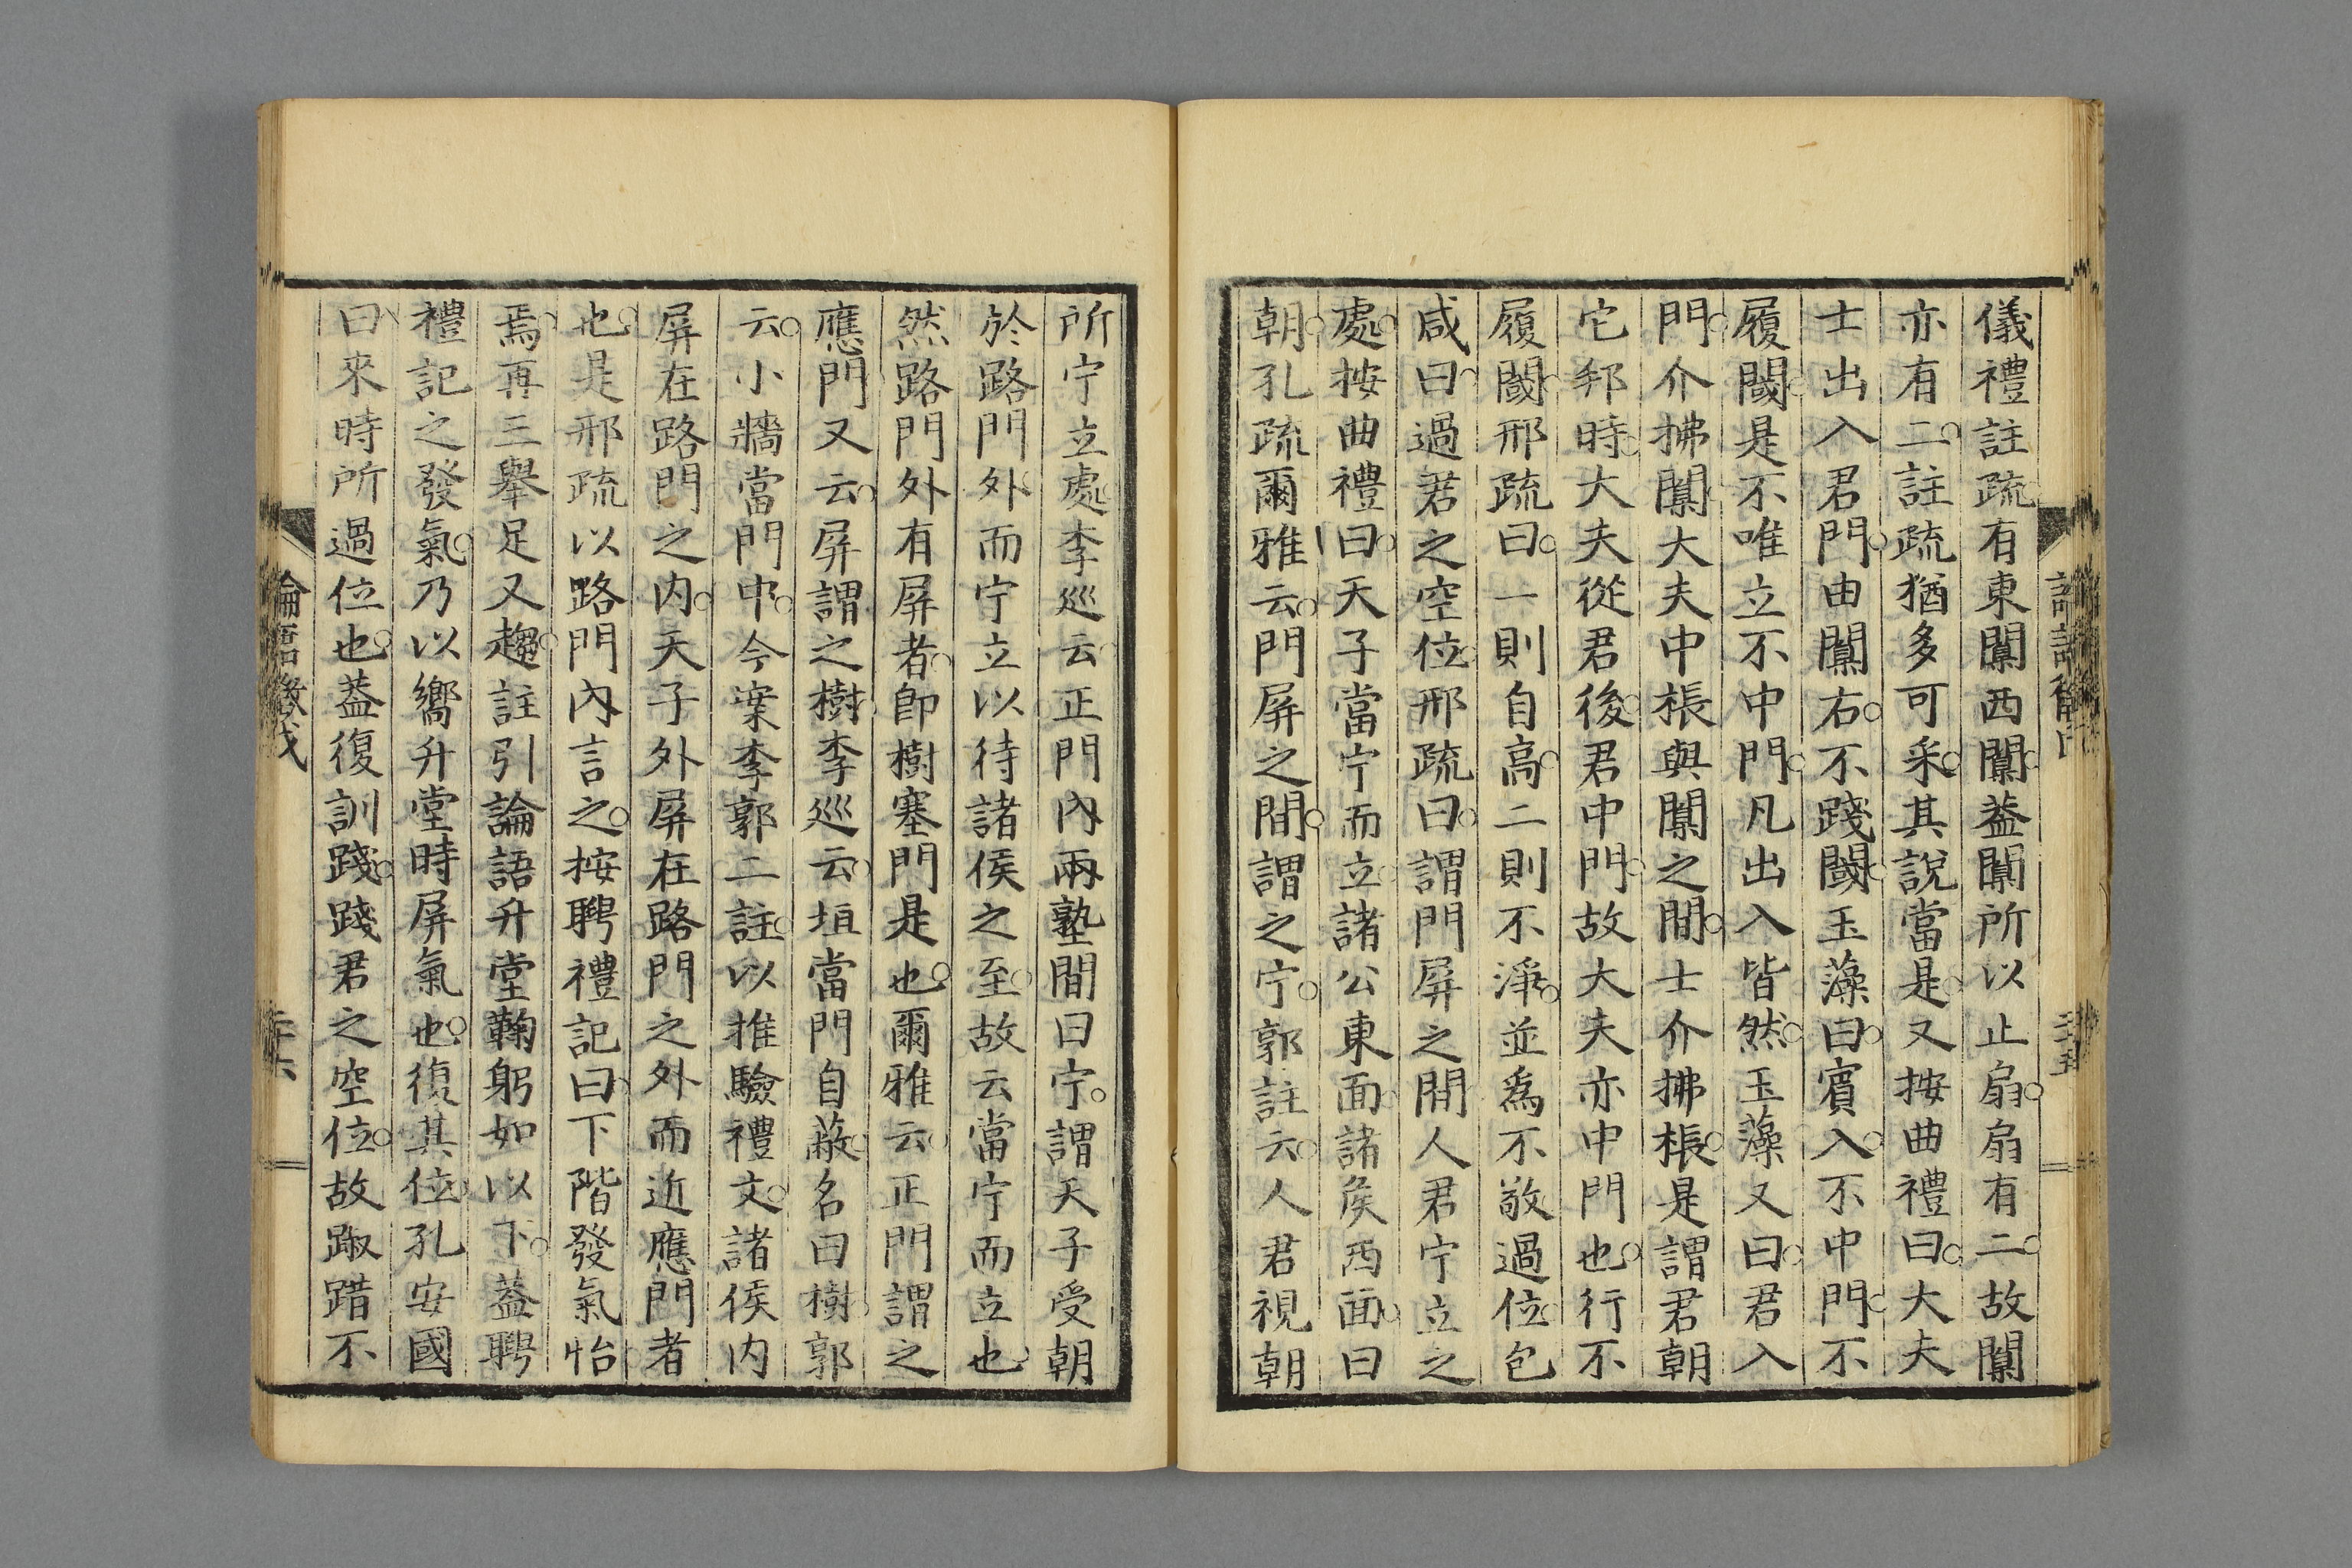 儀禮註疏有東闑西闑。蓋闑所以止扇。扇有二。故闑
亦有二。註疏猶多可采。其說當是。又按曲禮曰。大夫
士出入君門。由闑右。不踐閾。玉藻曰。賓入。不中門。不
履閾。是不唯立不中門。凡出入皆然。玉藻又曰。君入
門。介拂闑。大夫中棖與闑之間。士介拂棖。是謂君朝
它邦時。大夫從君後。君中門。故大夫亦中門也。行不
履閾。邢疏曰。一則自高。二則不淨。並爲不敬。過位。包
咸曰。過君之空位。邢疏曰。謂門屏之間人君宁立之
處。按曲禮曰。天子當宁而立。諸公東面。諸侯西面。曰
朝。孔疏爾雅云。門屏之間。謂之宁。郭註云。人君視朝
所宁立處。李巡云。正門內兩塾間曰宁。謂天子受朝
於路門外。而宁立以待諸侯之至。故云當宁而立也。
然路門外有屏者。卽樹塞門是也。爾雅云。正門謂之
應門。又云。屏謂之樹。李巡云。垣當門自蔽。名曰樹。郭
云。小牆當門中。今案李郭二註。以推驗禮文。諸侯内
屏在路門之内。天子外屏在路門之外。而近應門者
也。是邢疏以路門內言之。按聘禮記曰。下階發氣怡
焉。再三舉足又趨。註引論語升堂鞠躬如以下。蓋聘
禮記之發氣。乃以嚮升堂時屏氣也。復其位。孔安國
曰。來時所過位也。蓋復訓踐。踐君之空位。故踧踖不
論語徵戊
二十六